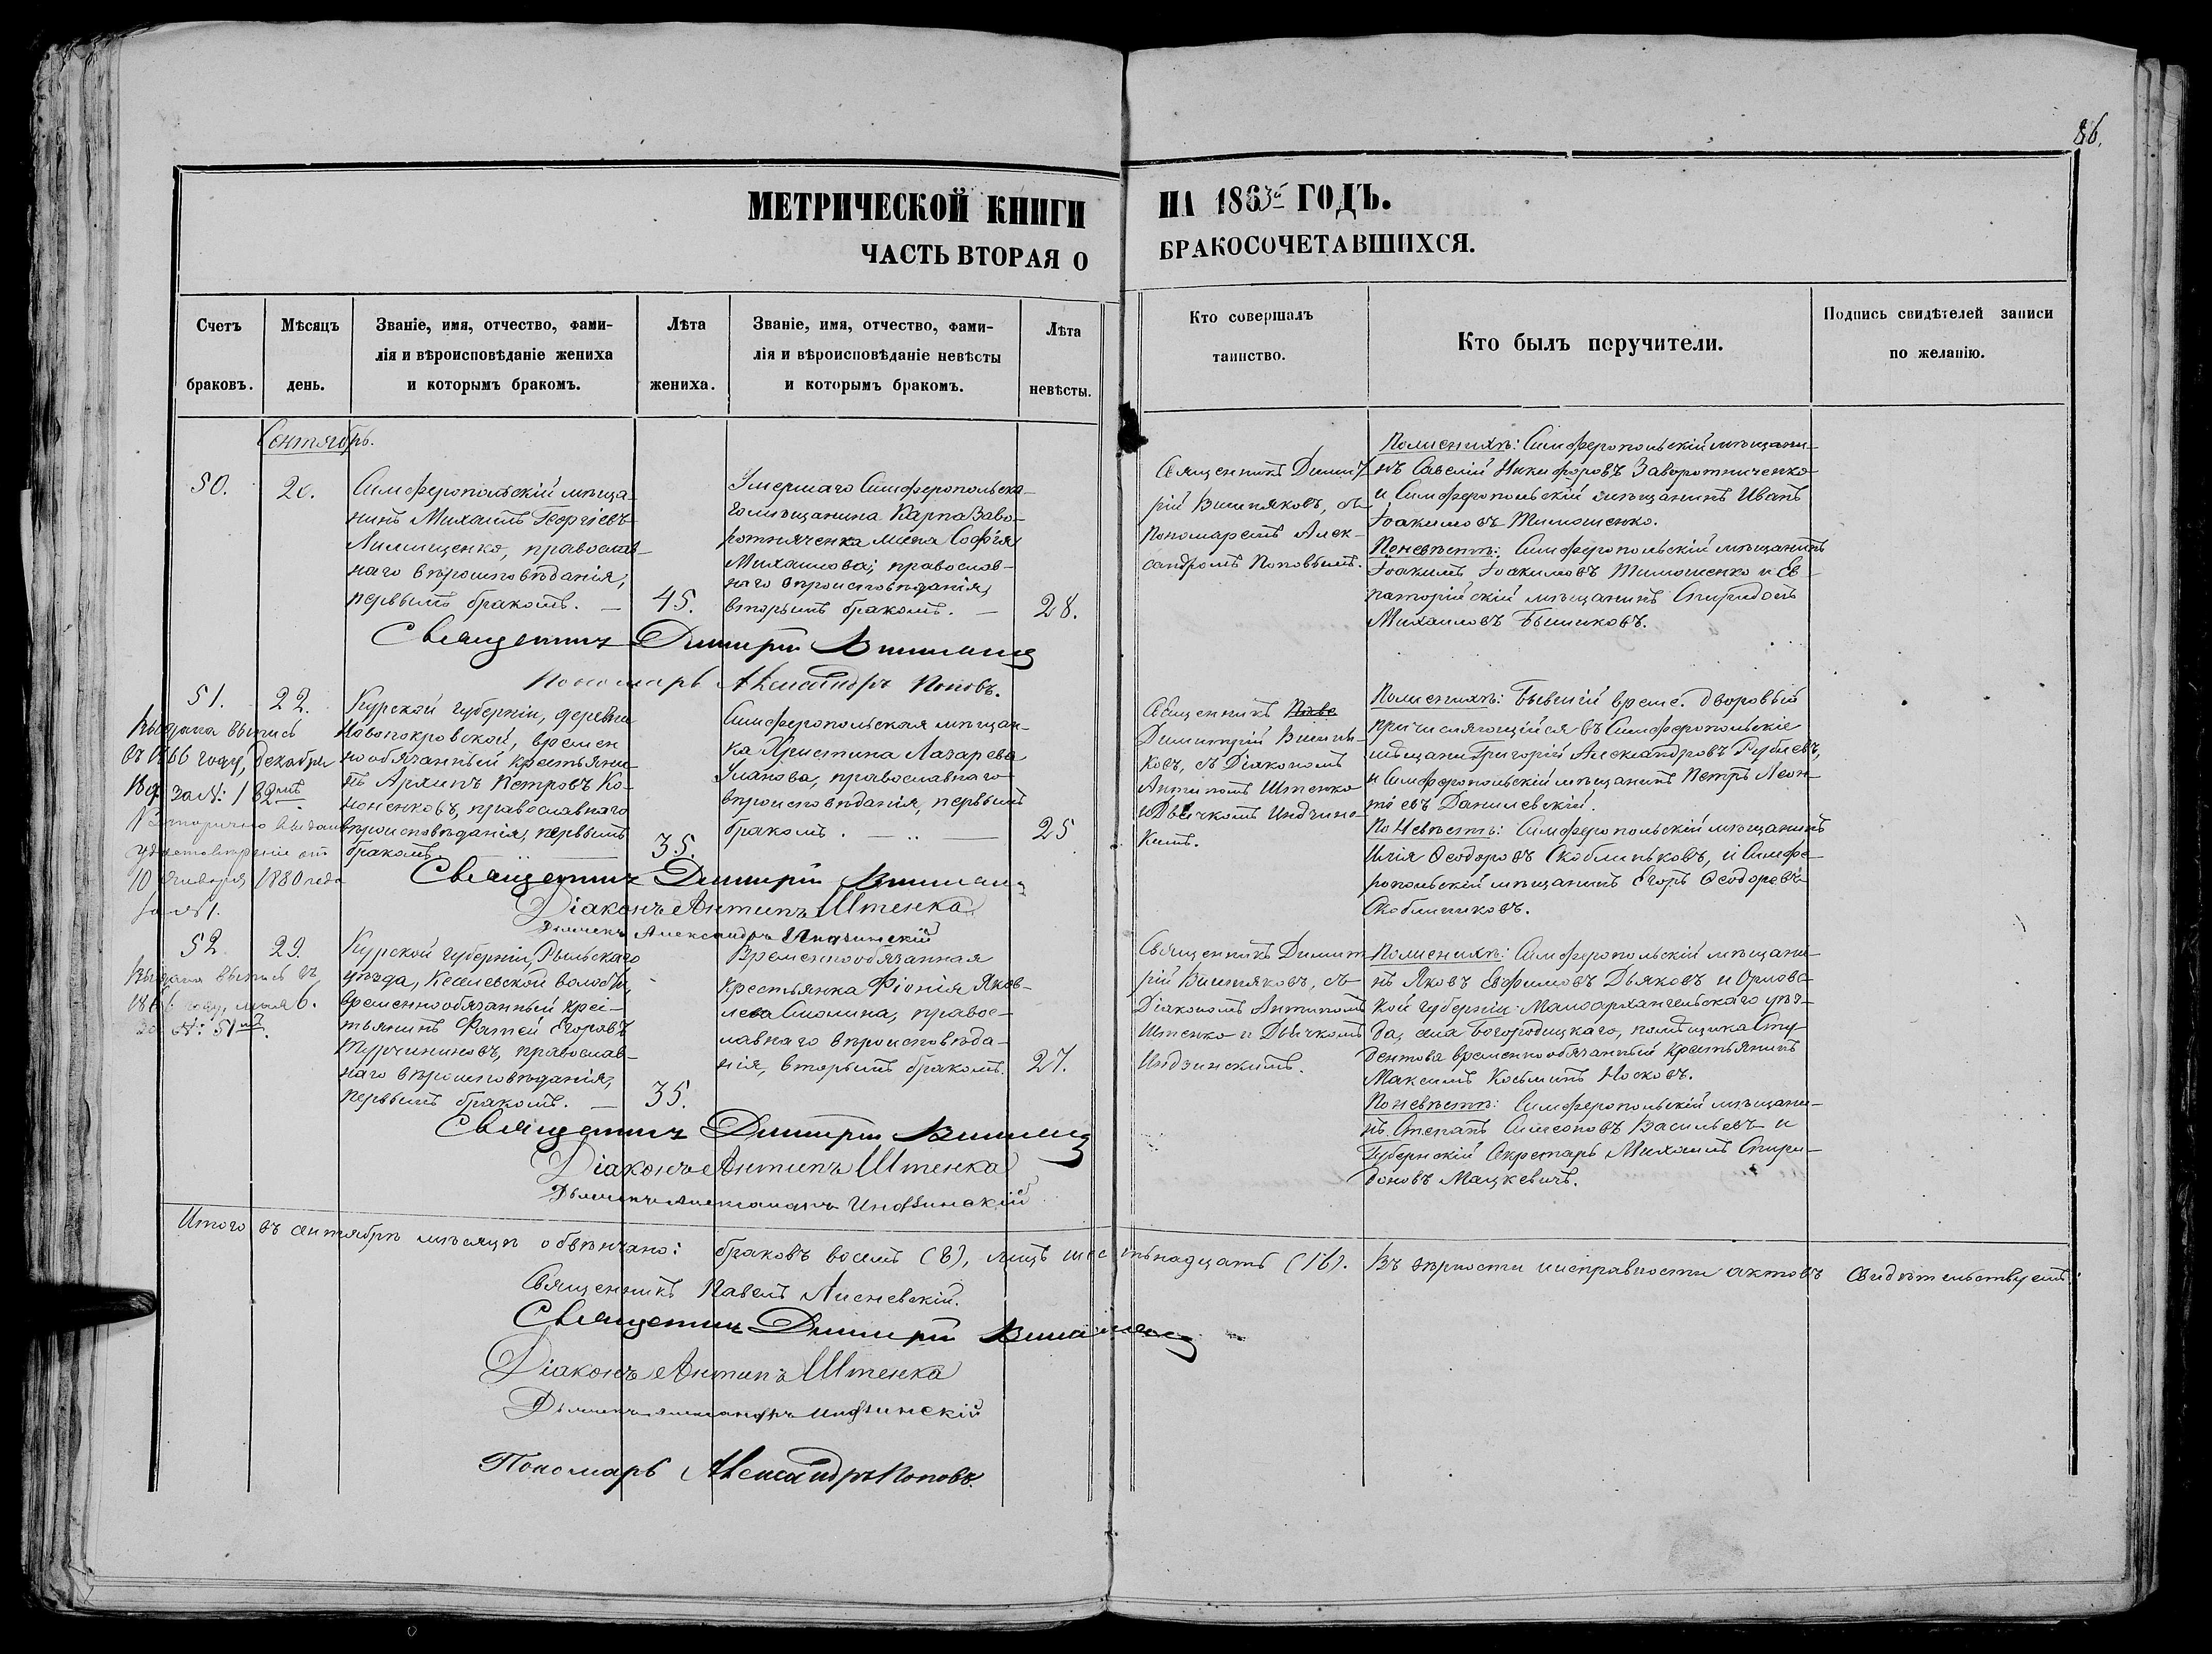 86.
МЕТРИЧЕСКОЙ КНИГИ НА 1863й ГОДЪ.
ЧАСТЬ ВТОРАЯ О БРАКОСОЧЕТАВШИХСЯ.
Счетъ браковъ.
Мѣсяцъ день.
Званіе, имя, отчество, фами-
лія и вѣроисповѣданіе жениха
и которымъ бракомъ.
Лѣта жениха.
Званіе, имя, отчество, фами-
лія и вѣроисповѣданіе невѣсты
и которымъ бракомъ.
Лѣта невѣсты.
Кто совершалъ
таинство.
Кто былъ поручители.
Подпись свидѣтелей записи
по желанію.
Сентябрь.
50.
20.
Симферопольскій мѣща-
нинъ Михаилъ Георгіевъ
православ-
наго вѣроисповѣданія,
первымъ бракомъ. —
45.
Умершаго Симферопольска-
го мѣщанина Карпа Заво-
ротняченка жена Софія
Михаилова, православ-
наго вѣроисповѣданія,
вторымъ бракомъ. —
28.
Священникъ Димит-
рій Вишняковъ, съ
Пономаремъ Алек-
сандромъ Поповымъ.
По женихѣ: Симферопольскій мѣщани-
нъ Савелій Никифоровъ Заворотниченко
и Симферопольскій мѣщанинъ Иванъ
Іоакимовъ Тимошенко.
По невѣстѣ: Симферопольскій мѣщанинъ
Іоакимъ Іоакимовъ Тимошенко и Ев-
паторійскій мѣщанинъ Спиридонъ
Михаиловъ
Священникъ Димитрій Вишняковъ
Пономарь Александръ Поповъ.
51.
22.
Выдана выпись
въ 1866 году, Декабря
за №: 182мъ.
Вторично выдано
удостовѣреніе отъ
10 Января 1880 года
за № 1.
Курской губерніи, деревни
Новопокровской, времен
нообязанный крестьяни-
нъ Архипъ Петровъ Ко-
ноненковъ, православнаго
вѣроисповѣданія, первымъ
бракомъ.
35.
Симферопольская мѣщан-
ка Христина Лазарева
православнаго
вѣроисповѣданія, первымъ
бракомъ. — .. —
25
Священникъ Паве
Димитрій Вишня-
ковъ, съ Діакономъ
Антипомъ Штенко
и Дьячкомъ Индзинс-
кимъ.
По женихѣ: Бывшій време. дворовый
причисляющійся въ Симферопольскіе
мѣщане Григорій Александровъ
и Симферопольскій мѣщанинъ Петръ Леон-
тіевъ Данилевскій.
По невѣстѣ: Симферопольскій мѣщанинъ
Илія Ѳеодоровъ Скоблиньковъ, и Симфе-
ропольскій мѣщанинъ Егоръ Ѳеодоровъ
Скоблиниковъ.
Священникъ Димитрій Вишняковъ
Діаконъ Антипъ Штенка
Дьячекъ Александръ Индзинскій
52.
29.
Выдана выпись въ
1866 году, 6.
за №: 51мъ.
Курской губерніи, Рыльскаго
уѣзда, волости,
временнообязанный крес-
тьянинъ Фатей Егоровъ
православ-
наго вѣроисповѣданія,
первымъ бракомъ. —
35.
Временнообязанная
крестьянка Фіонія Яков-
лева Смолина, правос-
лавнаго вѣроисповѣда-
нія, вторымъ бракомъ.
27.
Священникъ Димит
рій Вишняковъ, съ
Діакономъ Антипомъ
Штенко и Дьячкомъ
Индзинскимъ.
По женихѣ: Симферопольскій мѣщани-
нъ Яковъ Евфимовъ Дьяковъ и Орловс-
кой губерніи Малоархангельскаго уѣз-
да, села Богородицкаго, помѣщика Сту-
дентова временнообязанный крестьянинъ
Максимъ Косьминъ Носковъ.
По невѣстѣ: Симферопольскій мѣщани-
нъ Степанъ Симеоновъ Васильевъ и
Губернскій Секретарь Михаилъ Спири-
доновъ Мацкевичъ.
Священникъ Димитрій Вишняковъ
Діаконъ Антипъ Штенка
Дьячекъ Александръ Индзинскій
Итого въ сентябрѣ мѣсяцѣ обвѣнчано: браковъ восемь (8), лицъ шестьнадцать (16). Въ вѣрности и исправности актовъ свидѣтельствуемъ:
Священникъ Павелъ
Священникъ Димитрій Вишняковъ
Діаконъ Антипъ Штенка
Дьячекъ Александръ Индзинскій
Пономарь Александръ Поповъ.